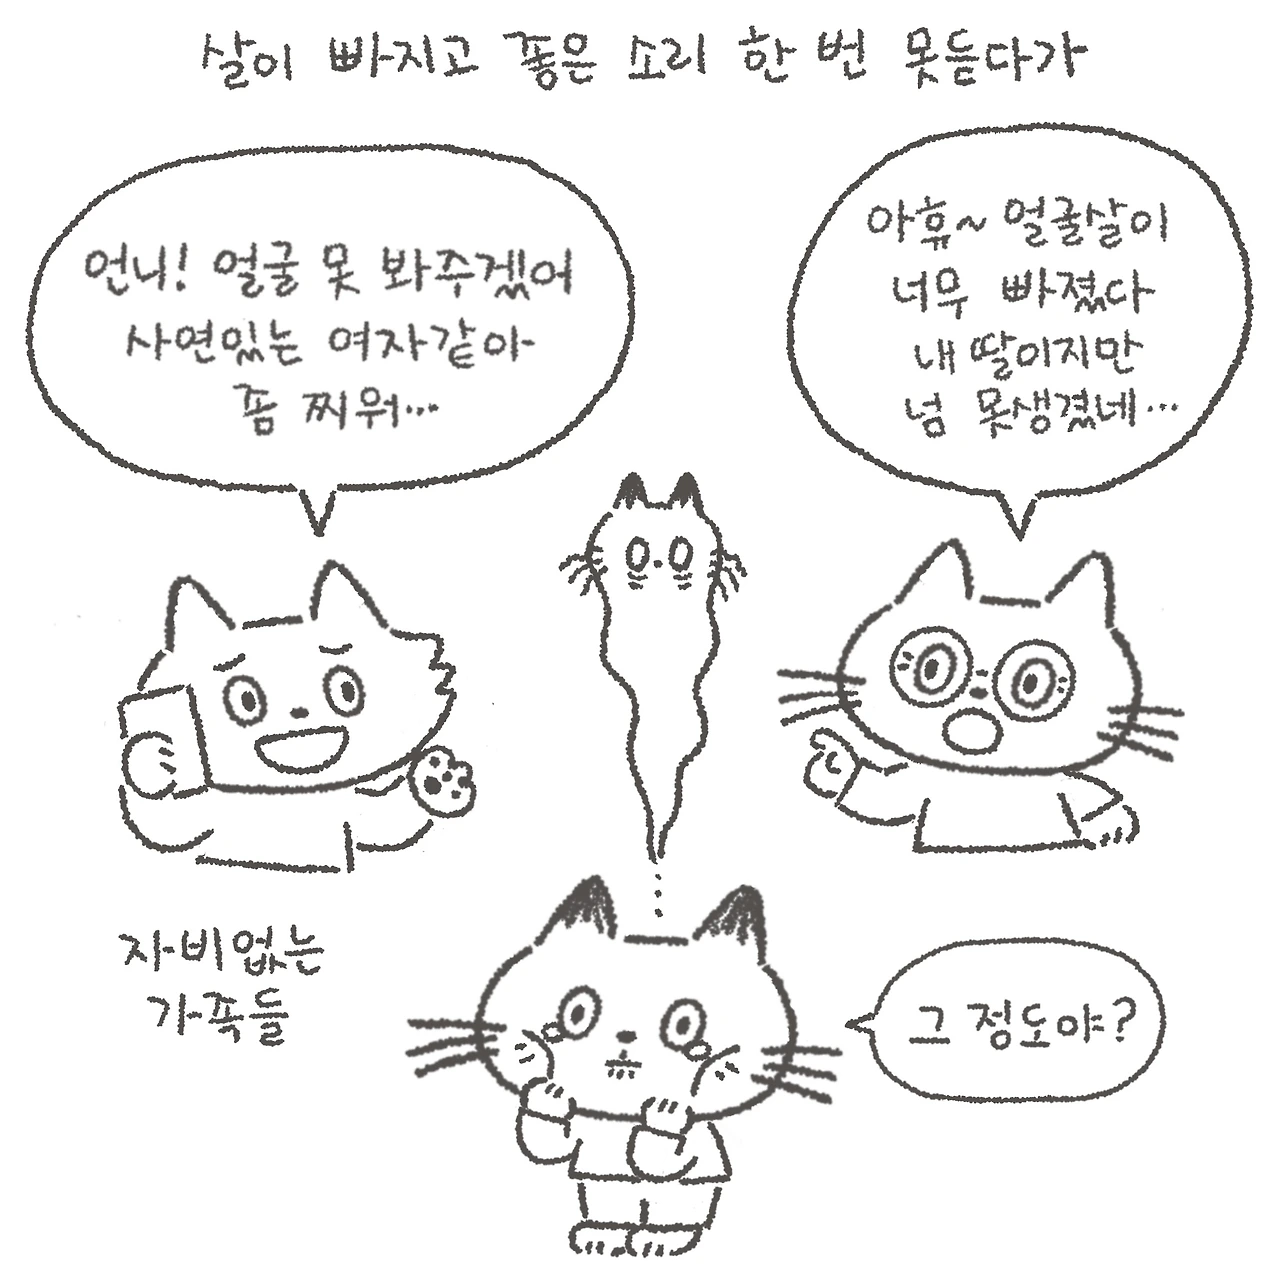 살이 빠지고 좋은 소리 한 번 못듣다가
언니! 얼굴 못 봐주겠어
사연있는 여자같아
좀 찌워...
아휴~ 얼굴살이
너무 빠졌다
내 딸이지만
넘 못생겼네...
자비없는
가족들
그 정도야?